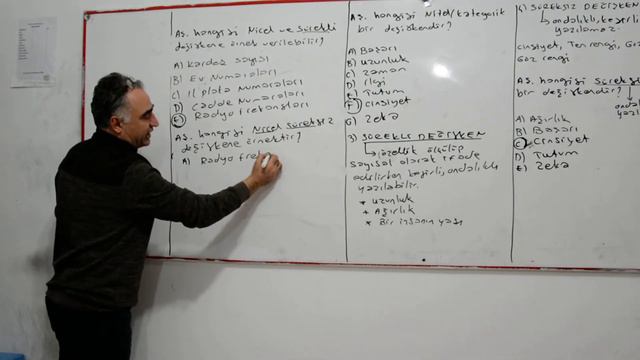 Aş. hangisi Nicel ve Sürekli
değişkene örnek verilebilir?
A) Kardeş sayısı
B) Ev Numaraları
C) İl plaka Numaraları
D) Cadde Numaraları
E) Radyo frekansları
Aş. hangisi Nicel Süreksiz
değişkene örnektir?
A) Radyo frek
Aş. hangisi Nitel/kategorik
bir değişkendir?
A) Başarı
B) Uzunluk
C) Zaman
D) ilgi
E) Tutum
F) Cinsiyet
G) Zeka
3) SÜREKLİ DEĞİŞKEN
özellik ölçülüp
sayısal olarak ifade
edilirken kesirli, ondalıklı
yazılabilir.
* Uzunluk
* Ağırlık
* Bir insanın yaşı
4) SÜREKSİZ DEĞİŞKEN
ondalıklı, kesirli
yazılamaz.
Cinsiyet, Ten rengi,
Göz rengi
Aş. hangisi Süreksiz
bir değişkendir?
A) Ağırlık
B) Başarı
C) Cinsiyet
D) Tutum
E) Zeka